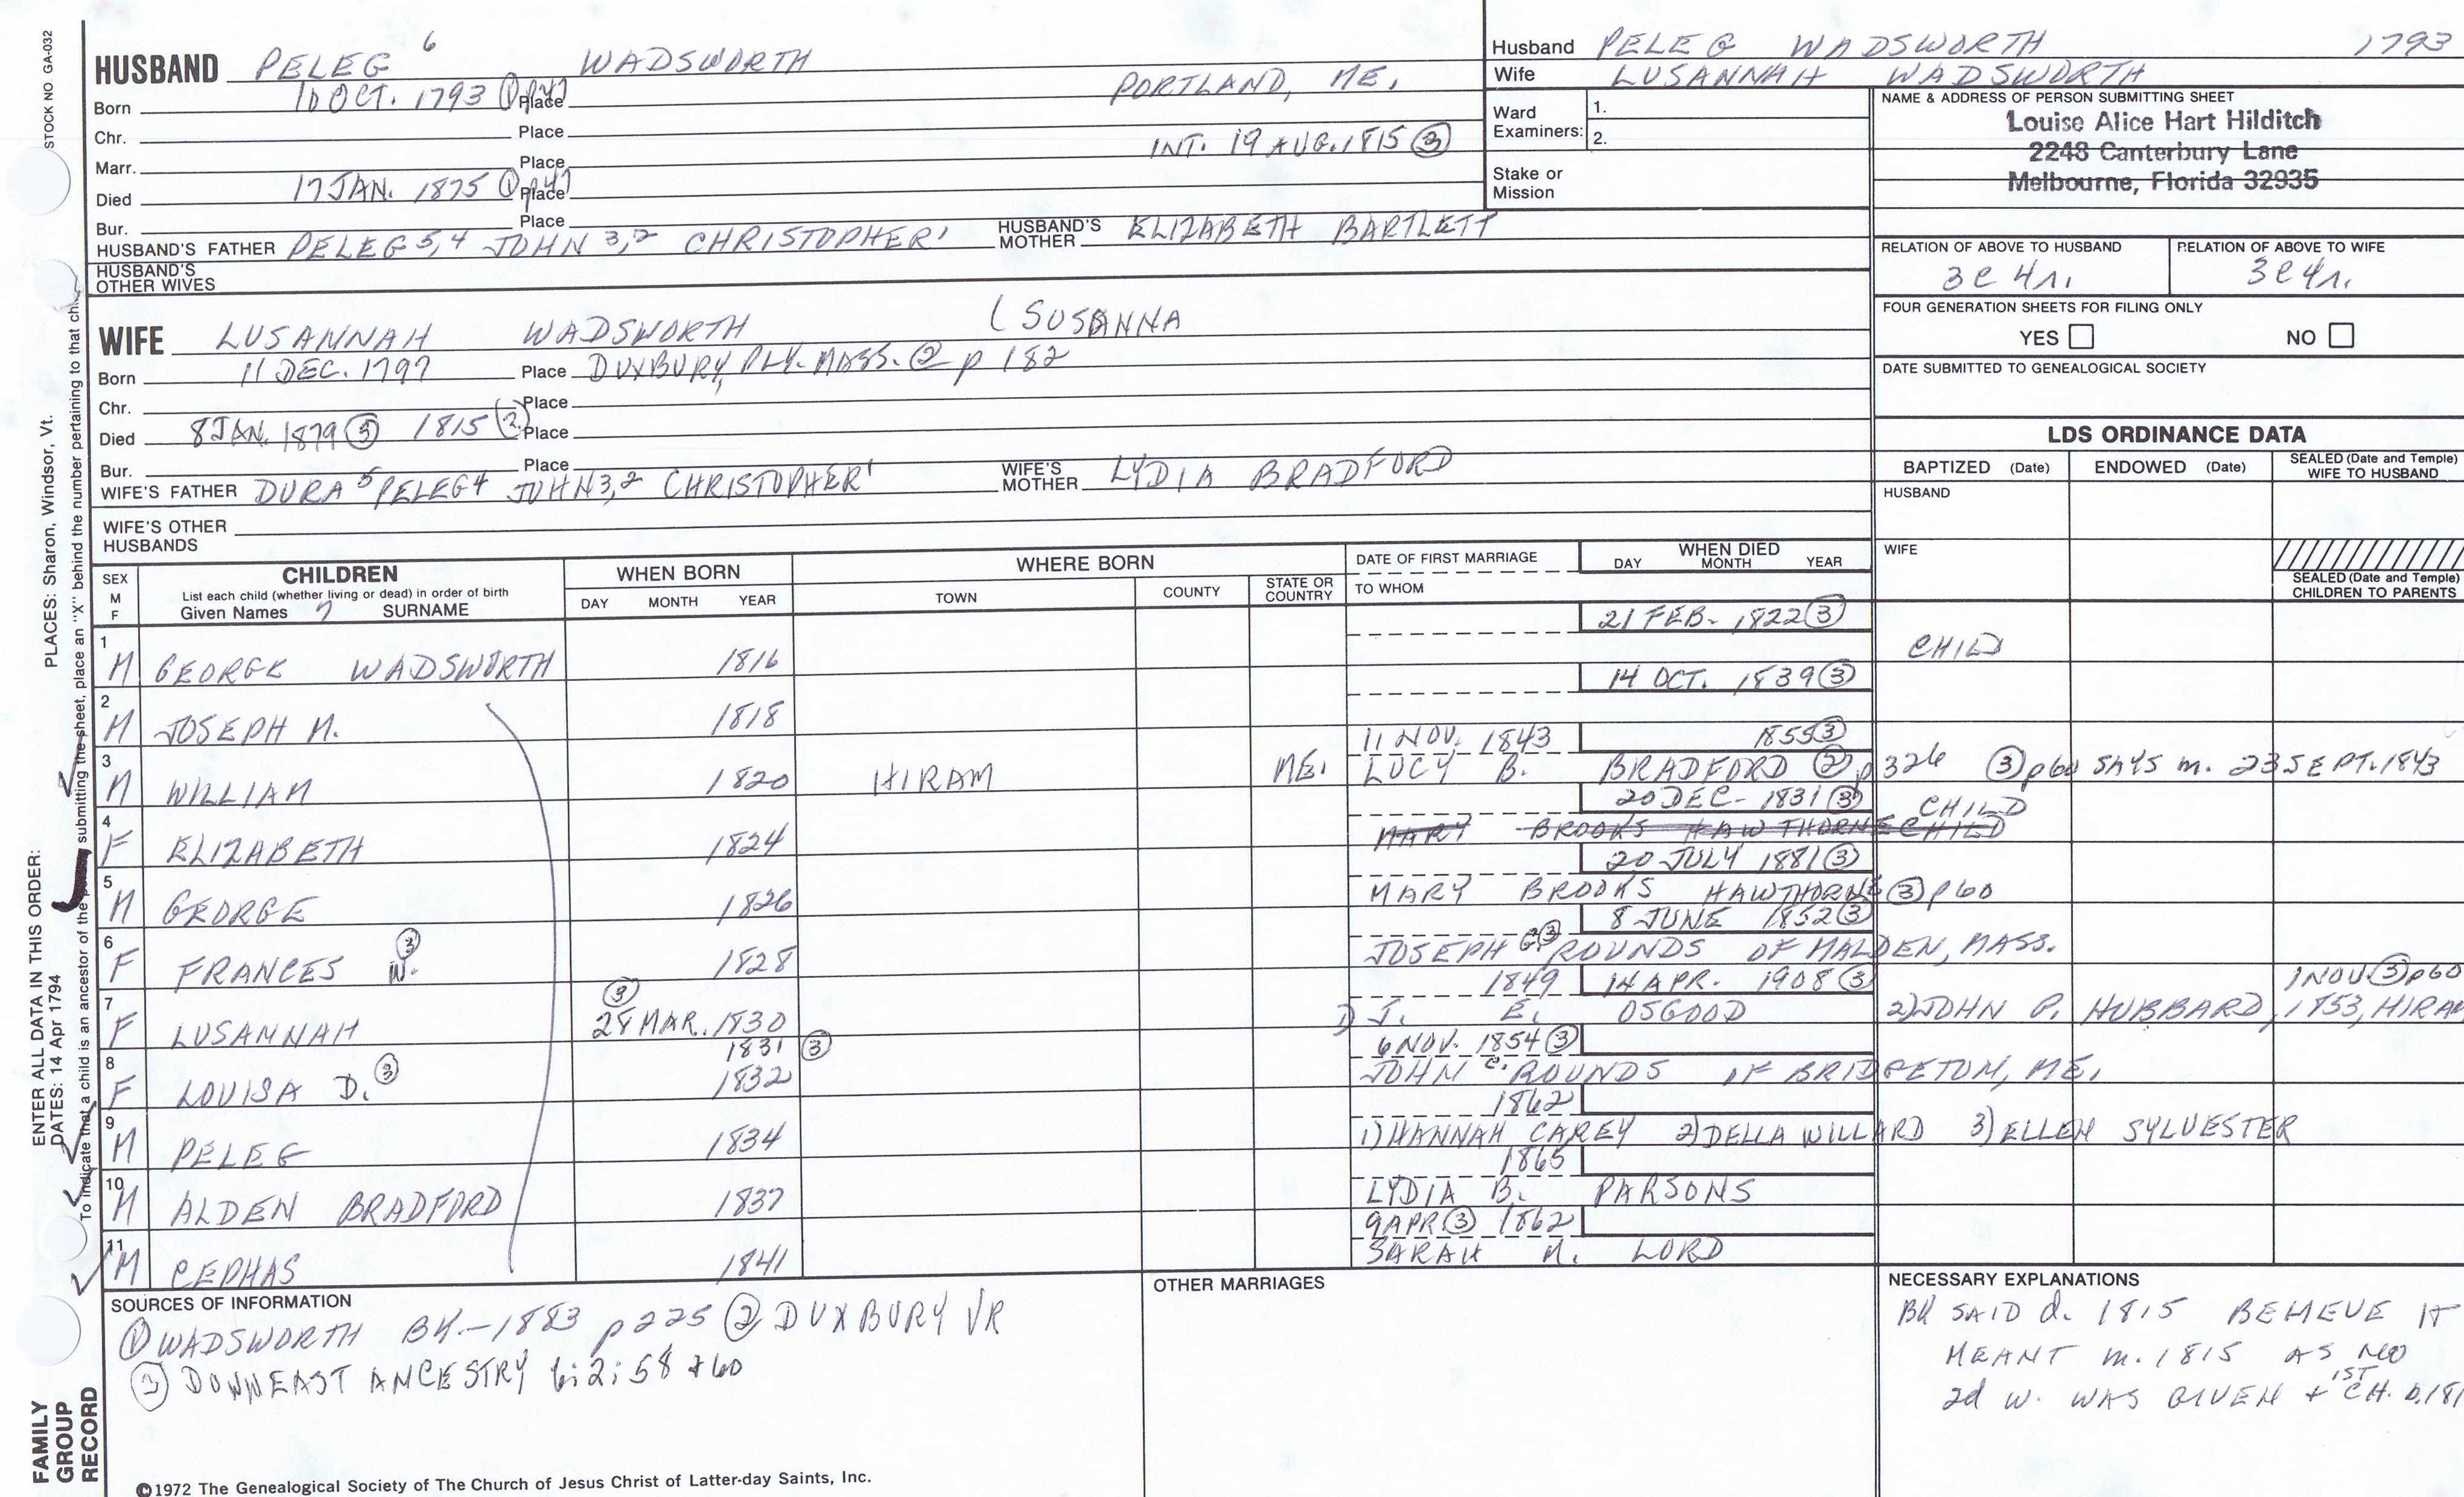 STOCK NO GA-032
PLACES: Sharon, Windsor, Vt.
ENTER ALL DATA IN THIS ORDER:
DATES: 14 Apr 1794
To indicate that a child is an ancestor of the submitting the sheet, place an "X" behind the number pertaining to that
FAMILY GROUP RECORD
HUSBAND PELEG 6 WADSWORTH
Born 10 OCT. 1793 ① Place PORTLAND, ME.
Chr. Place
Marr. Place INT. 19 AUG. 1815 ③
Died 17 JAN. 1875 ① Place
Bur. Place
HUSBAND'S FATHER PELEG 5,4 JOHN 3,2 CHRISTOPHER 1 HUSBAND'S MOTHER ELIZABETH BARTLETT
HUSBAND'S OTHER WIVES
WIFE LUSANNAH WADSWORTH (SUSANNA
Born 11 DEC. 1797 Place DUXBURY, PLY. MASS. ② p 182
Chr. Place
Died 8 JAN. 1879 ③ 1815 ② Place
Bur. Place
WIFE'S FATHER DURA 5 PELEG 4 JOHN 3,2 CHRISTOPHER 1 WIFE'S MOTHER LYDIA BRADFORD
WIFE'S OTHER HUSBANDS
Husband PELEG WADSWORTH 1793
Wife LUSANNAH WADSWORTH
Ward Examiners: 1.
2.
Stake or Mission
NAME & ADDRESS OF PERSON SUBMITTING SHEET
Louise Alice Hart Hilditch
2248 Canterbury Lane
Melbourne, Florida 32935
RELATION OF ABOVE TO HUSBAND RELATION OF ABOVE TO WIFE
3c 4r. 3c 4r.
FOUR GENERATION SHEETS FOR FILING ONLY
YES NO
DATE SUBMITTED TO GENEALOGICAL SOCIETY
LDS ORDINANCE DATA
BAPTIZED (Date) ENDOWED (Date) SEALED (Date and Temple) WIFE TO HUSBAND
HUSBAND
WIFE
SEALED (Date and Temple) CHILDREN TO PARENTS
SEX M F
CHILDREN
List each child (whether living or dead) in order of birth
Given Names 7 SURNAME
WHEN BORN
DAY MONTH YEAR
WHERE BORN
TOWN COUNTY STATE OR COUNTRY
DATE OF FIRST MARRIAGE
TO WHOM
WHEN DIED
DAY MONTH YEAR
21 FEB. 1822 ③
1 M GEORGE WADSWORTH 1816 CHILD
14 OCT. 1839 ③
2 M JOSEPH M. 1818
11 NOV. 1843 1855 ③
3 M WILLIAM 1820 HIRAM ME. LUCY B. BRADFORD ② p 326 ③ p 60 SAYS m. 23 SEPT. 1843
20 DEC. 1831 ③ CHILD
4 F ELIZABETH 1824 MARY BROOKS HAWTHORNE CHILD
20 JULY 1881 ③
5 M GEORGE 1826 MARY BROOKS HAWTHORNE ③ p60
8 JUNE 1852 ③
6 F FRANCES W. ③ 1828 JOSEPH G. ③ ROUNDS OF MALDEN, MASS.
1849 14 APR. 1908 ③ 1 NOV. ③ p60
7 F LUSANNAH ③ 28 MAR. 1830 1) J. E. OSGOOD 2) JOHN P. HUBBARD, 1853, HIRAM
1831 ③ 6 NOV. 1854 ③
8 F LOUISA D. ③ 1832 JOHN C. ROUNDS OF BRIDGETON, ME.
1862
9 M PELEG 1834 1) HANNAH CAREY 2) DELLA WILLARD 3) ELLEN SYLVESTER
1865
10 M ALDEN BRADFORD 1837 LYDIA B. PARSONS
9 APR ③ 1862
11 M CEPHAS 1841 SARAH M. LORD
SOURCES OF INFORMATION
① WADSWORTH BK.-1883 p225 ② DUXBURY VR
③ DOWNEAST ANCESTRY 6:2:58 + 60
OTHER MARRIAGES
NECESSARY EXPLANATIONS
BK SAID d. 1815 BELIEVE IT
MEANT m. 1815 AS NO
2d W. WAS GIVEN + 1ST CH. b. 181
©1972 The Genealogical Society of The Church of Jesus Christ of Latter-day Saints, Inc.